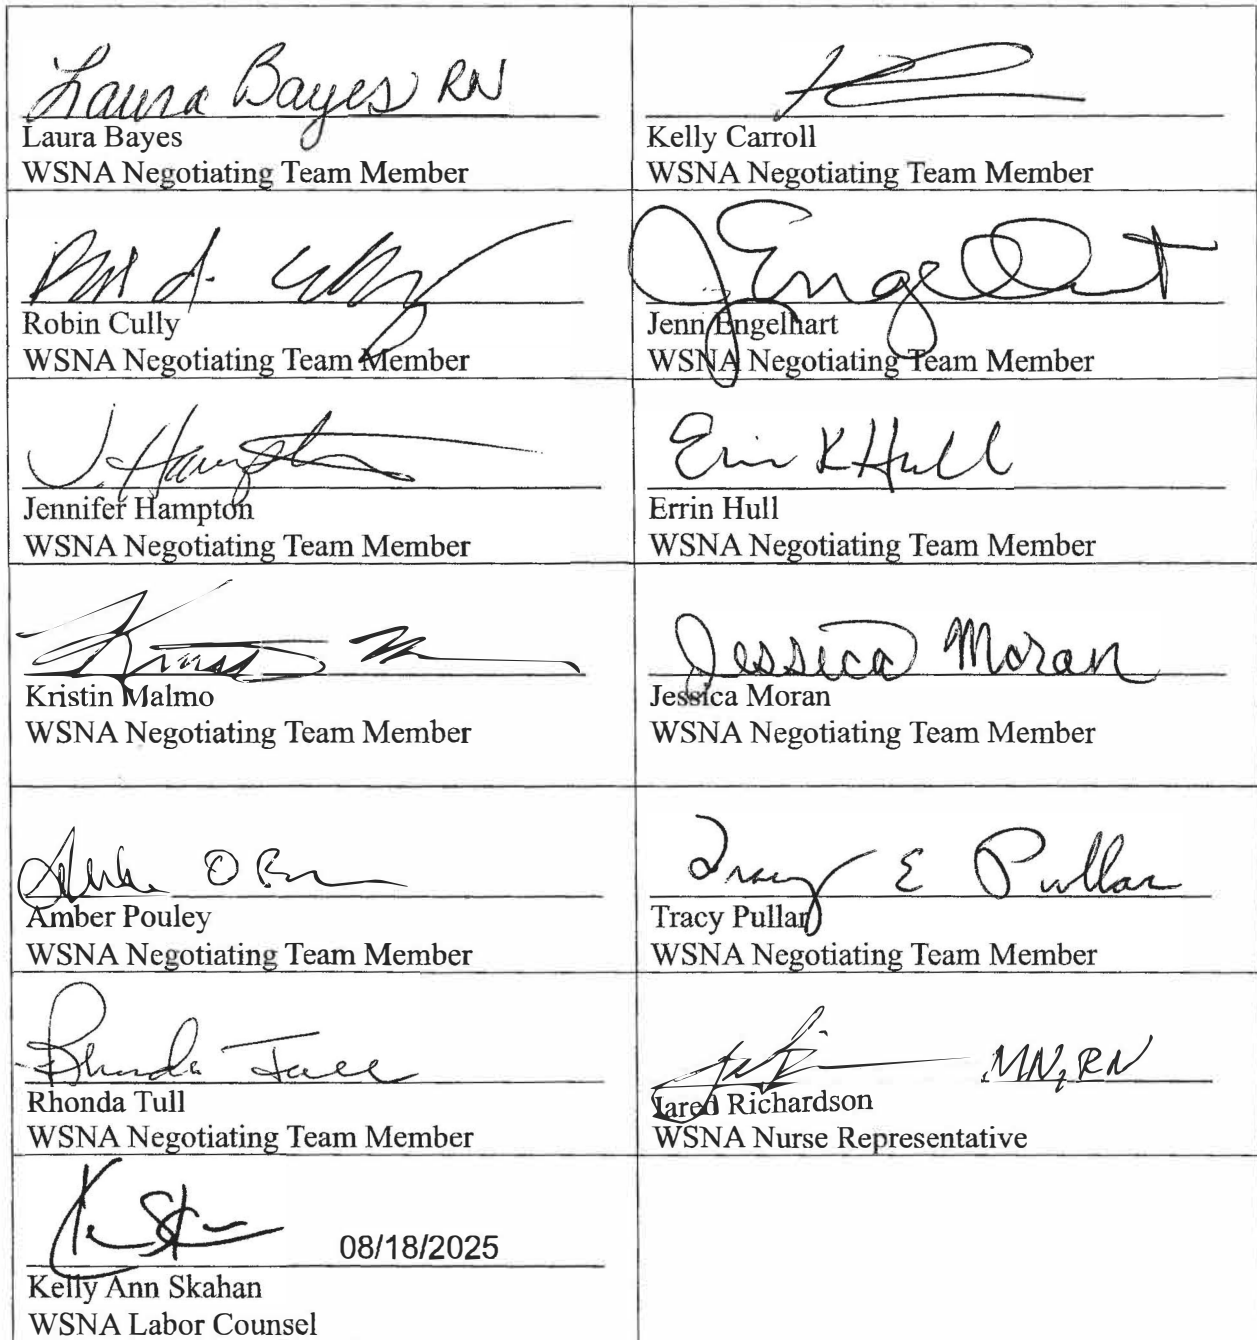 Laura Bayes RN
Laura Bayes
WSNA Negotiating Team Member
Kelly Carroll
WSNA Negotiating Team Member
Robin Cully
WSNA Negotiating Team Member
J Engelhart
Jenn Engelhart
WSNA Negotiating Team Member
J. Hampton
Jennifer Hampton
WSNA Negotiating Team Member
Erin K Hull
Errin Hull
WSNA Negotiating Team Member
Kristin Malmo
WSNA Negotiating Team Member
Jessica Moran
Jessica Moran
WSNA Negotiating Team Member
Amber Pouley
WSNA Negotiating Team Member
Tracy E Pullar
Tracy Pullar
WSNA Negotiating Team Member
Rhonda Tull
Rhonda Tull
WSNA Negotiating Team Member
MN, RN
Jared Richardson
WSNA Nurse Representative
08/18/2025
Kelly Ann Skahan
WSNA Labor Counsel